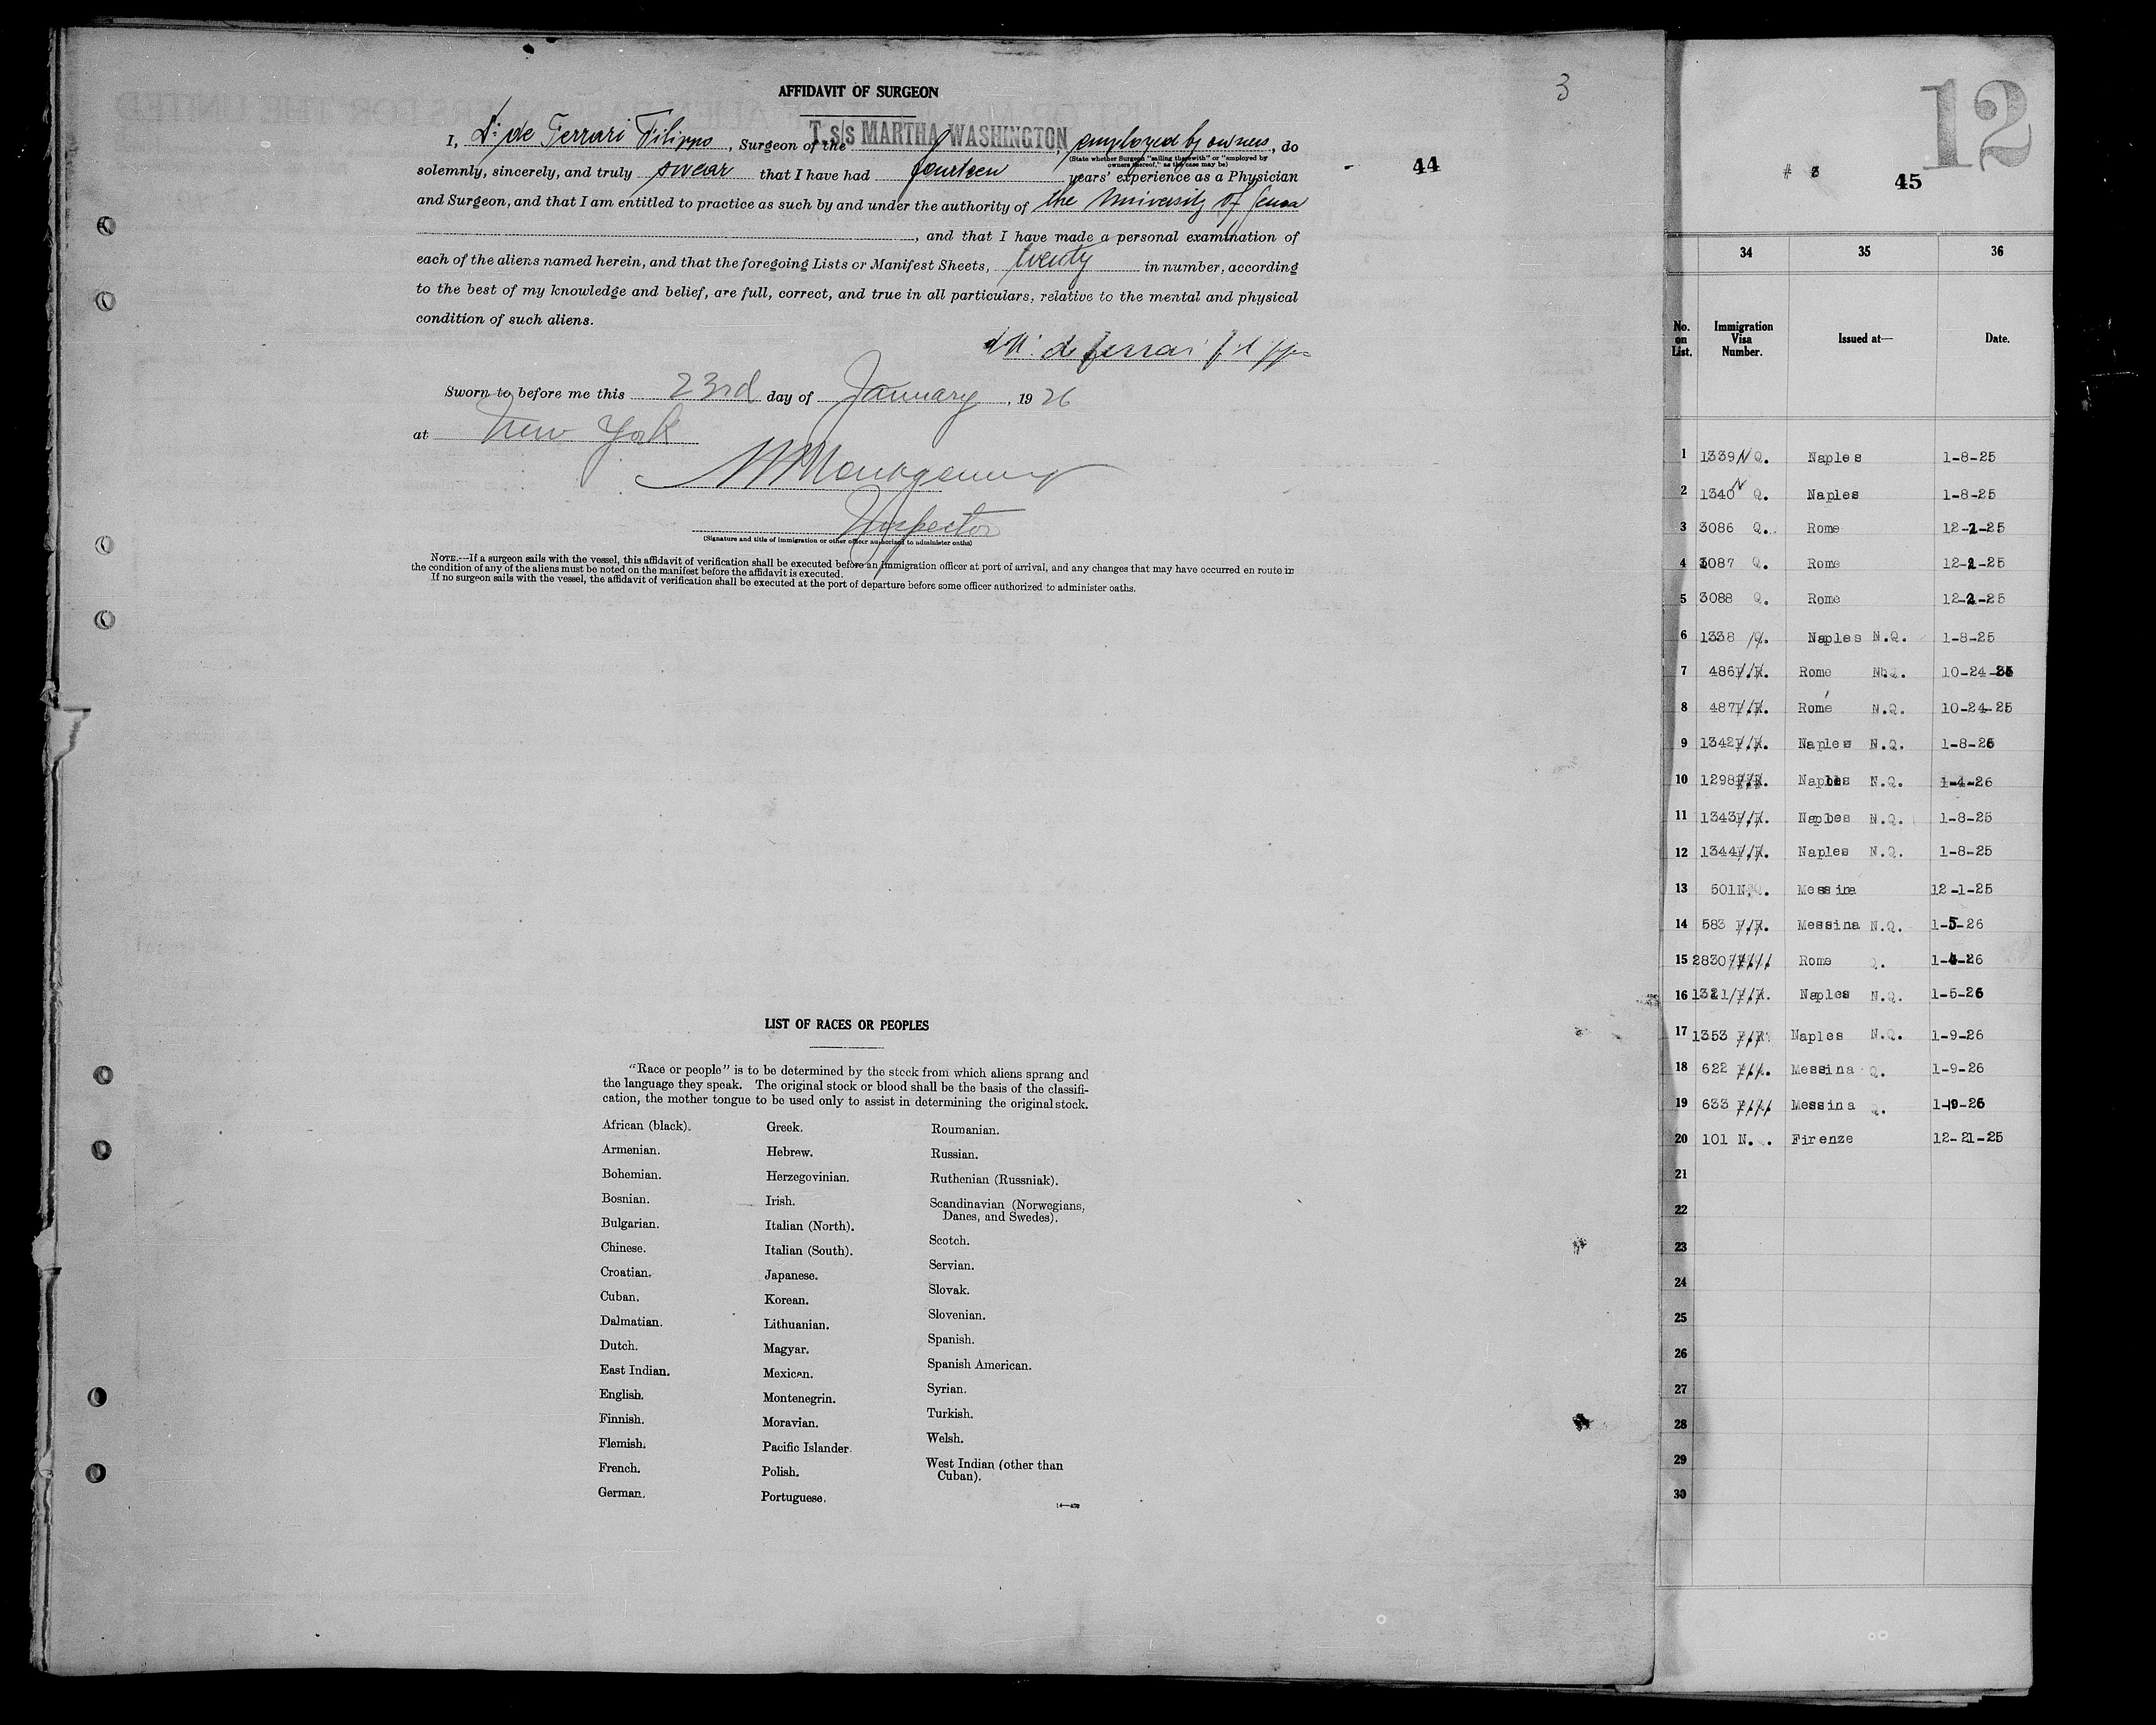 3
AFFIDAVIT OF SURGEON
I, Dr. de Ferrari Filippo, Surgeon of the T.s/s MARTHA WASHINGTON, employed by owners, do
(State whether Surgeon "sailing therewith" or "employed by
owners thereof," as the case may be)
solemnly, sincerely, and truly swear that I have had fourteen years' experience as a Physician
and Surgeon, and that I am entitled to practice as such by and under the authority of the University of Genoa
, and that I have made a personal examination of
each of the aliens named herein, and that the foregoing Lists or Manifest Sheets, twenty in number, according
to the best of my knowledge and belief, are full, correct, and true in all particulars, relative to the mental and physical
condition of such aliens.
Dr. de Ferrari Filippo
Sworn to before me this 23rd day of January, 1926
at New York
Montgomery
Inspector
(Signature and title of immigration or other officer authorized to administer oaths)
NOTE.—If a surgeon sails with the vessel, this affidavit of verification shall be executed before an immigration officer at port of arrival, and any changes that may have occurred en route in
the condition of any of the aliens must be noted on the manifest before the affidavit is executed.
If no surgeon sails with the vessel, the affidavit of verification shall be executed at the port of departure before some officer authorized to administer oaths.
44
LIST OF RACES OR PEOPLES
"Race or people" is to be determined by the stock from which aliens sprang and
the language they speak. The original stock or blood shall be the basis of the classifi-
cation, the mother tongue to be used only to assist in determining the original stock.
African (black).
Armenian.
Bohemian.
Bosnian.
Bulgarian.
Chinese.
Croatian.
Cuban.
Dalmatian.
Dutch.
East Indian.
English.
Finnish.
Flemish.
French.
German.
Greek.
Hebrew.
Herzegovinian.
Irish.
Italian (North).
Italian (South).
Japanese.
Korean.
Lithuanian.
Magyar.
Mexican.
Montenegrin.
Moravian.
Pacific Islander.
Polish.
Portuguese.
Roumanian.
Russian.
Ruthenian (Russniak).
Scandinavian (Norwegians,
Danes, and Swedes).
Scotch.
Servian.
Slovak.
Slovenian.
Spanish.
Spanish American.
Syrian.
Turkish.
Welsh.
West Indian (other than
Cuban).
12
45
34 35 36
No. on List. Immigration Visa Number. Issued at— Date.
1 1339 N Q. Naples 1-8-25
2 1340 N Q. Naples 1-8-25
3 3086 Q. Rome 12-2-25
4 3087 Q. Rome 12-2-25
5 3088 Q. Rome 12-2-25
6 1338 Naples N.Q. 1-8-25
7 486 Rome 10-24-25
8 487 Rome N.Q. 10-24-25
9 1342 Naples N.Q. 1-8-26
10 1298 Naples N.Q. 1-4-26
11 1343 Naples N.Q. 1-8-25
12 1344 Naples N.Q. 1-8-25
13 501 N.Q. Messina 12-1-25
14 583 Messina N.Q. 1-5-26
15 2830 Rome Q. 1-4-26
16 1321 Naples N.Q. 1-5-26
17 1353 Naples N.Q. 1-9-26
18 622 Messina Q. 1-9-26
19 633 Messina Q. 1-9-26
20 101 N. . Firenze 12-21-25
21
22
23
24
25
26
27
28
29
30